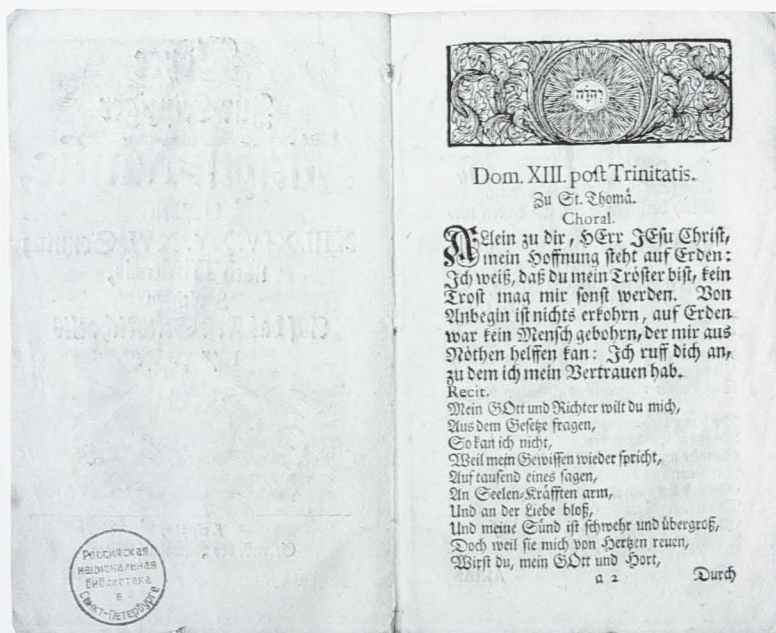 Российская
национальная
библиотека
в
Санкт-Петербурге
יְהֹוָה
Dom. XIII. poſt Trinitatis.
Zu St. Thomå.
Choral.
ALlein zu dir, HErr JEſu Chriſt,
mein Hoffnung ſteht auf Erden:
Ich weiß, daß du mein Tröſter biſt, kein
Troſt mag mir ſonſt werden. Von
Anbegin iſt nichts erkohrn, auf Erden
war kein Menſch gebohrn, der mir aus
Nöthen helffen kan: Ich ruff dich an,
zu dem ich mein Vertrauen hab.
Recit.
Mein GOtt und Richter wilt du mich,
Aus dem Geſetze fragen,
So kan ich nicht,
Weil mein Gewiſſen wieder ſpricht,
Auf tauſend eines ſagen,
An Seelen-Kräfften arm,
Und an der Liebe bloß,
Und meine Sünd iſt ſchwehr und übergroß,
Doch weil ſie mich von Hertzen reuen,
Wirſt du, mein GOtt und Hort,
a 2 Durch